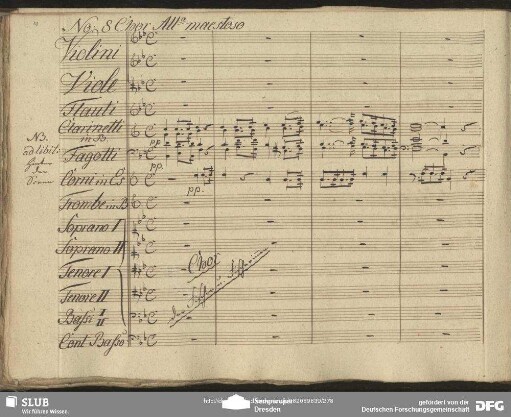 No. 8 Chor All.o maestoso
Violini
Viole
Flauti
Clarinetti
in B
NB.
ad libit:
Fagotti
pp.
pp.
Corni in Es
pp.
Trombe in B
Soprano I
Soprano II
Chor
Tenore I
Tenore II
Bassi I
II
Cont. Basso
SLUB
Wir führen Wissen.
Dresden
gefördert von der
Deutschen Forschungsgemeinschaft
DFG